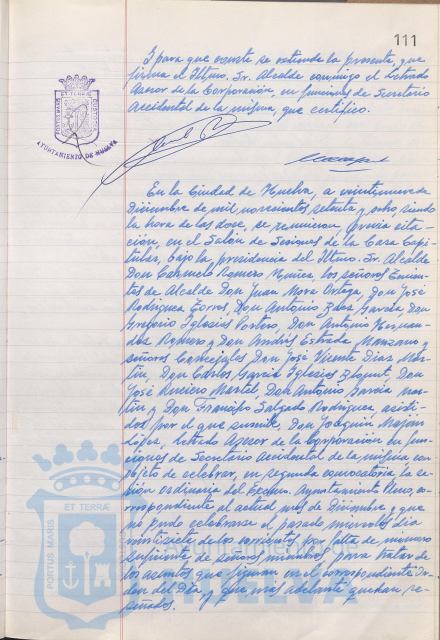 111
Y para que conste se extiende la presente, que
firma el Iltmo. Sr. Alcalde conmigo el Letrado
Asesor de la Corporación, en funciones de Secretario
Accidental de la misma, que certifico.
PORTUS MARIS ET TERRAE CUSTODIA
AYUNTAMIENTO DE HUELVA
En la Ciudad de Huelva, a veintinueve de
Diciembre de mil novecientos setenta y ocho, siendo
la hora de las doce, se reunieron, previa cita-
ción, en el Salón de Sesiones de la Casa Capi-
tular, bajo la presidencia del Iltmo. Sr. Alcalde
Don Carmelo Romero Núñez, los señores Tenien-
tes de Alcalde Don Juan Mora Ortega, Don José
Rodríguez Don Antonio Báez García, Don
Gregorio Iglesias Don Antonio Hernan-
dez Romero y Don Andrés Estrada Manzano y
señores Concejales Don José Vicente Díaz Mar-
tín, Don Carlos García Iglesias Don
José Martel, Don Antonio García Mar-
tín y Don Francisco Salgado Rodríguez, asisti-
dos por el que suscribe, Don Joaquín
López, Letrado Asesor de la Corporación en fun-
ciones de Secretario Accidental de la misma con
objeto de celebrar, en segunda convocatoria, la se-
sión ordinaria del Excmo. Ayuntamiento Pleno, co-
rrespondiente al actual mes de Diciembre, y que
no pudo celebrarse el pasado miercoles día
veintisiete de los corrientes, por falta de número
suficiente de señores miembros, para tratar de
los asuntos que figuran en el correspondiente Or-
den del Día, y que más adelante quedan re-
señados.
PORTUS MARIS ET TERRÆ
Ayuntamiento de
HUELVA